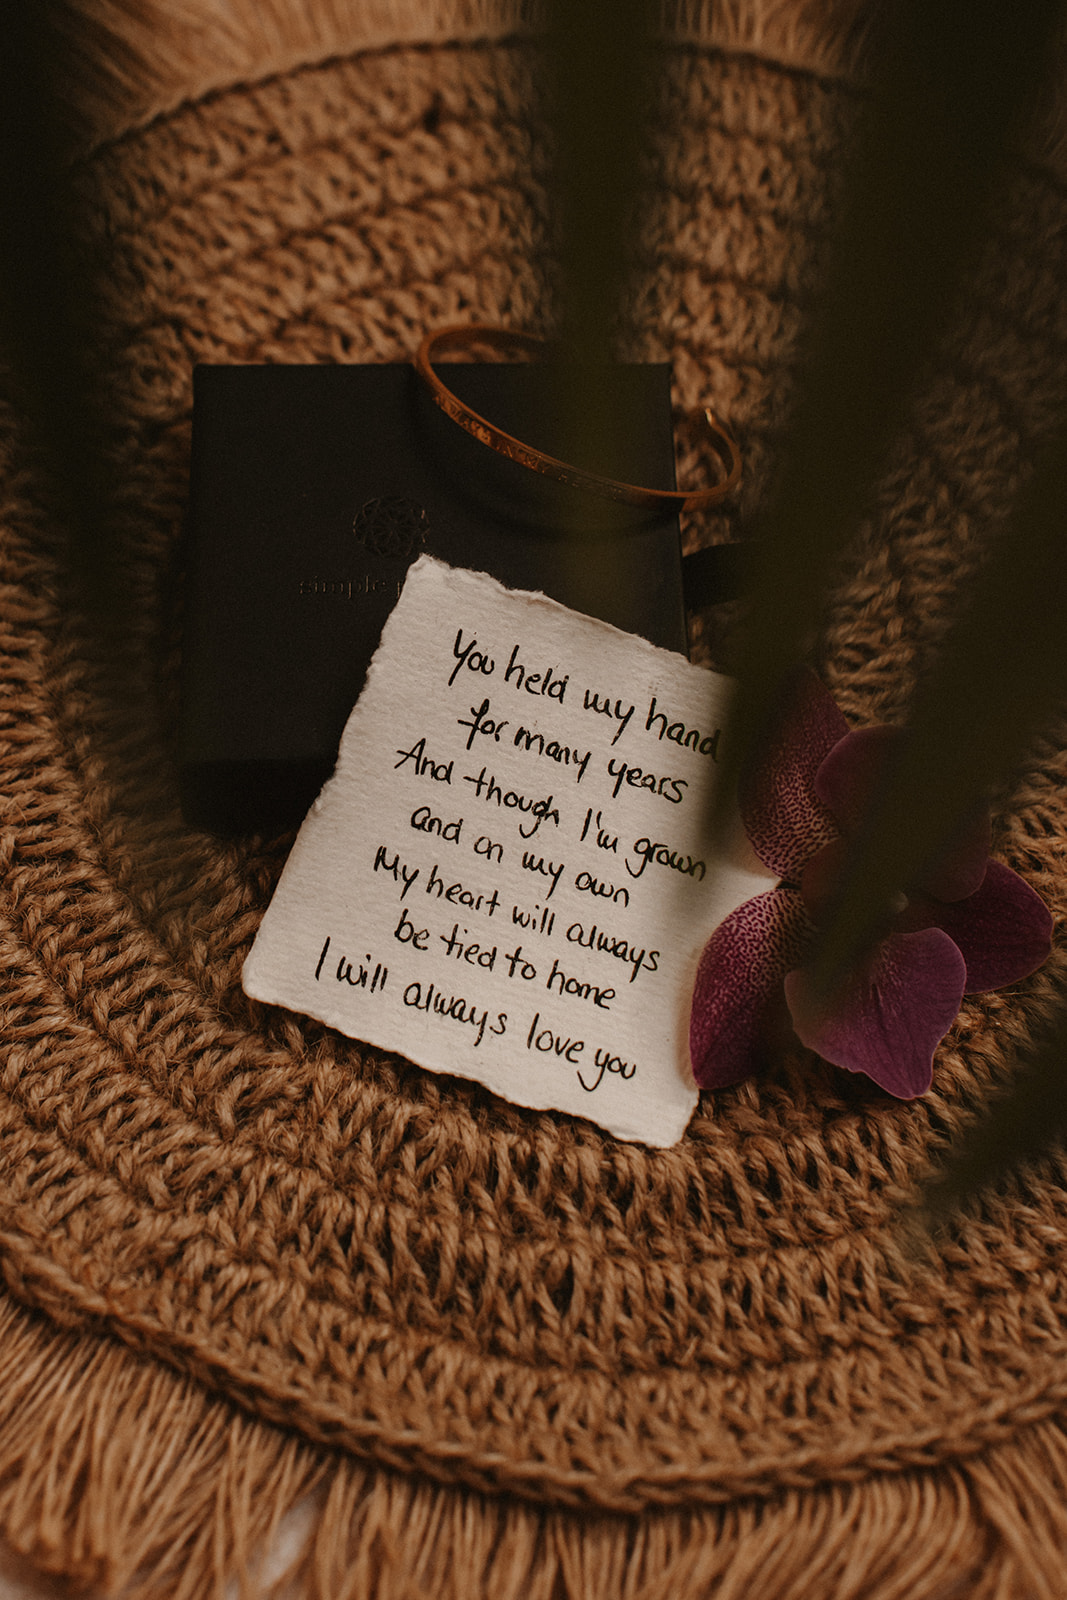 simple
You held my hand
for many years
And though I'm grown
and on my own
My heart will always
be tied to home
I will always love you